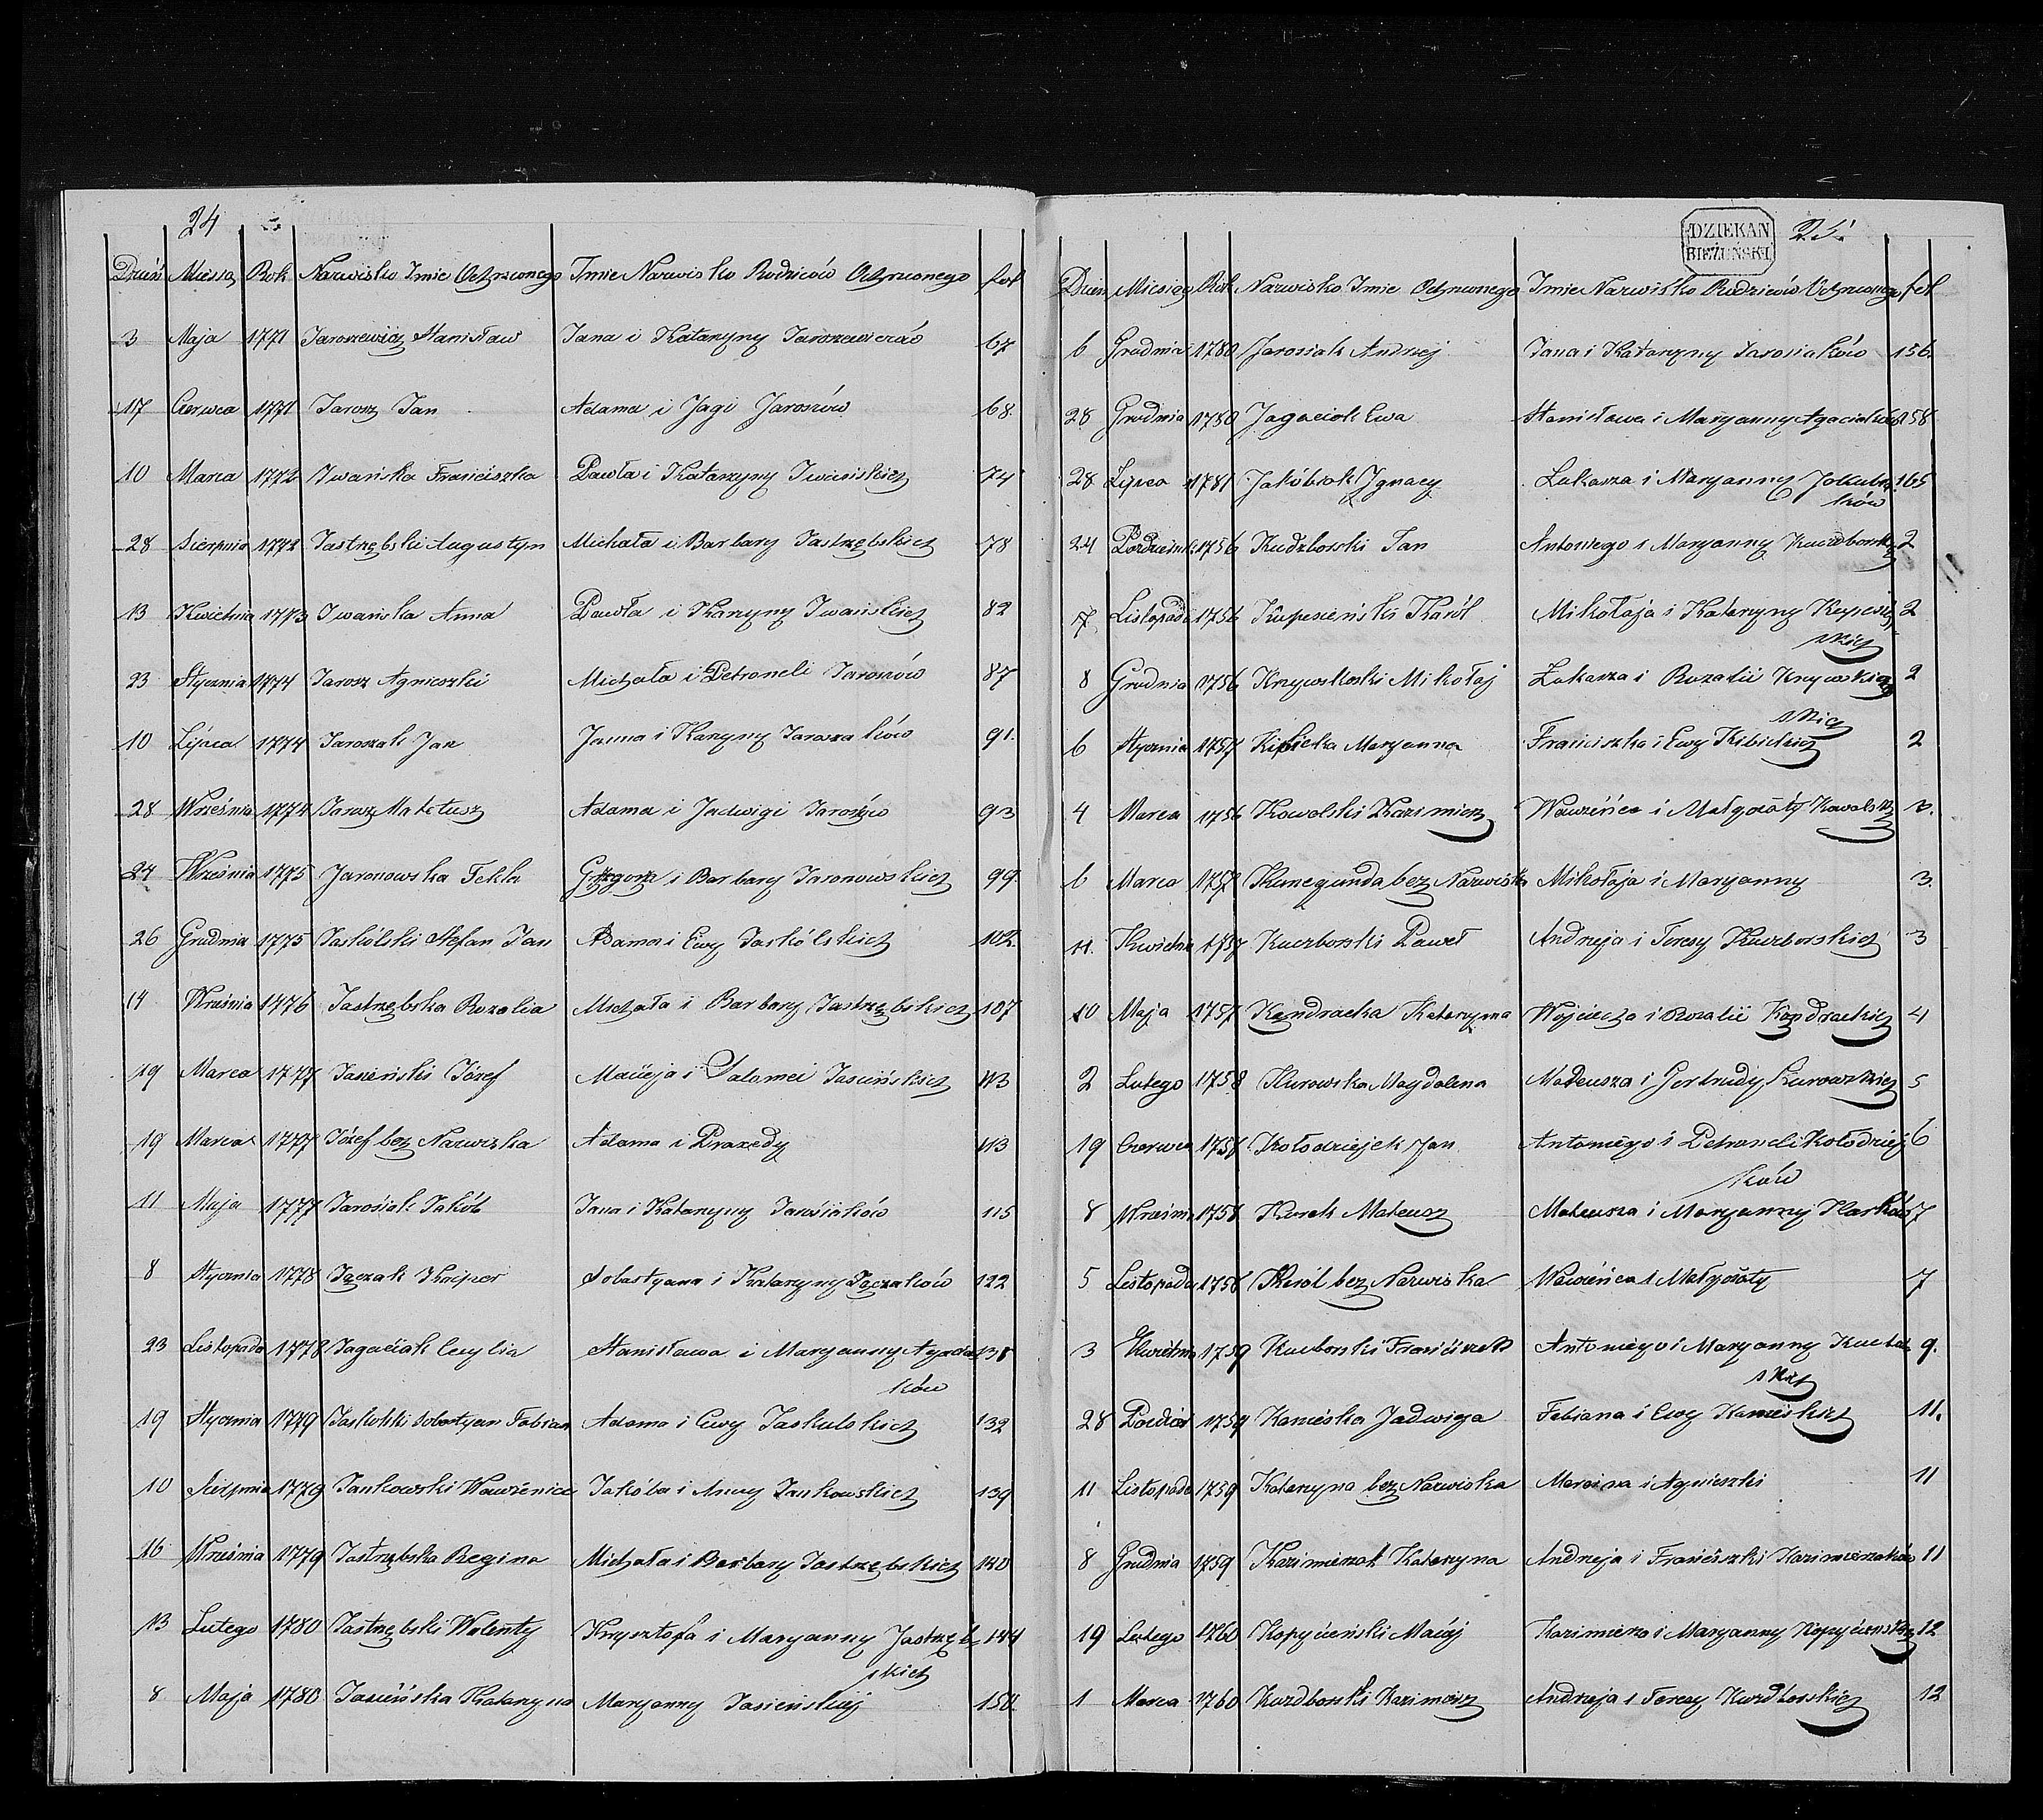 24
Dzień Miesią Rok Nazwisko Imie Ochrzconego Imie Nazwisko Rodziców Ochrzconego fol
3 Maja 1771 Jaroszewicz Stanisław Jana i Katarzyny Jaroszewiczów 67
17 Czerwca 1771 Jarosz Jan Adama i Jagi Jaroszów 68.
10 Marca 1772 Iwańska Franciszka Pawła i Katarzyny Iwańskich 74
28 Sierpnia 1772 Jastrzębski Augustyn Michała i Barbary Jastrzębskich 78
13 Kwietnia 1773 Iwańska Anna Pawła i Karzyny Iwańskich 82
23 Stycznia 1774 Jarosz Agnieszki Michała i Petroneli Jaroszów 87
10 Lipca 1774 Jaroszak Jan Janna i Karzyny Jaroszaków 91.
28 Września 1774 Jarosz Mateusz Adama i Jadwigi Jaroszów 93
24 Września 1775 Jaronowska Tekla Grzegorza i Barbary Jaronowskich 99
26 Grudnia 1775 Jaskólski Stefan Jan Adama i Ewy Jaskólskich 102
14 Września 1776 Jastrzębska Rozalia Michała i Barbary Jastrzębskich 107
19 Marca 1777 Jasieński Józef Macieja i Salomei Jasieńskich 113
19 Marca 1777 Józef bez Nazwiska Adama i Praxedy 113
11 Maja 1777 Jarosiak Jakób Jana i Katarzyny Jarosiaków 115
8 Stycznia 1778 Jączak Kacper Sobastyana i Katarzyny Jączaków 122
23 Listopada 1778 Jagaciak Cecylia Stanisława i Maryanny Agacia
ków
19 Stycznia 1779 Jaskolski Sobastyan Fabian Adama i Ewy Jaskulskich 132
10 Sierpnia 1779 Jankowski Wawrzeniec Jakóba i Anny Jankowskich 139
16 Września 1779 Jastrzębska Regina Michała i Barbary Jastrzębskich 140
13 Lutego 1780 Jastrzębski Walenty Krysztofa i Maryanny Jastrzęb 144
skich
8 Maja 1780 Jasieńska Katarzyna Maryanny Jasieńskiej 150.
DZIEKAN
BIEŻUŃSKI
25.
Dzień Miesiąc Rok Nazwisko Imie Ochrzconego Imie Nazwisko Rodziców Ochrzconego fol
6 Grudnia 1780 Jarosiak Andrzej Jana i Katarzyny Jarosiaków 156
28 Grudnia 1780 Jagaciak Ewa Stanisława i Maryanny Agaciaków 158
28 Lipca 1781 Jakóbiak Ignacy Łukasza i Maryanny Jokubia 165
ków
24 1756 Kudzborski Jan Antoniego i Maryanny 2
7 Listopada 1756 Karól Mikołaja i Katarzyny 2
skich
8 Grudnia 1756 Mikołaj Łukasza i Rozalii 2
skich
6 Stycznia 1757 Kibicka Maryanna Franciszka i Ewy Kibickich 2
4 Marca 1756 Kowalski Kazimierz Wawrzeńca i Małgożaty Kowalski 3.
6 Marca Kunegunda bez Nazwiska Mikołaja i Maryanny 3.
11. Kwietna 1757 Kuczborski Paweł Andrzeja i Teresy Kuczborskich 3
10 Maja 1757 Kondracka Katarzyna Wojciecha i Rozalii Kondrackich 4
2 Lutego 1758 Kurowska Magdalena Mateusza i Gertrudy Kurowskich 5
19 Czerwca 1758 Kołodziejek Jan Antoniego i Petroneli Kołodziej 6
ków
8 Września 1758 Kurek Mateusz Mateusza i Maryanny 7
5 Listopada 1758 Karól bez Nazwiska Wawrzeńca i Małgożaty 7
3 Kwietnia 1759 Kuczborski Franciszek Antoniego i Maryanny Kuczbor 9.
skich
28 1759 Kamieńska Jadwiga Fabiana i Ewy Kamieńskich 11.
11 Listopada 1759 Katarzyna bez Nazwiska Marcina i Agnieszki 11
8 Grudnia 1759 Kazimierzak Katarzyna Andrzeja i Franciszki Kazimierzaków 11
19 Lutego 1760 Kopycieński Maciej Kazimierza i Maryanny Kopycieńskich 12
1 Marca 1760 Kuzdborski Kazimierz Andrzeja i Teresy Kuzdborskich 12